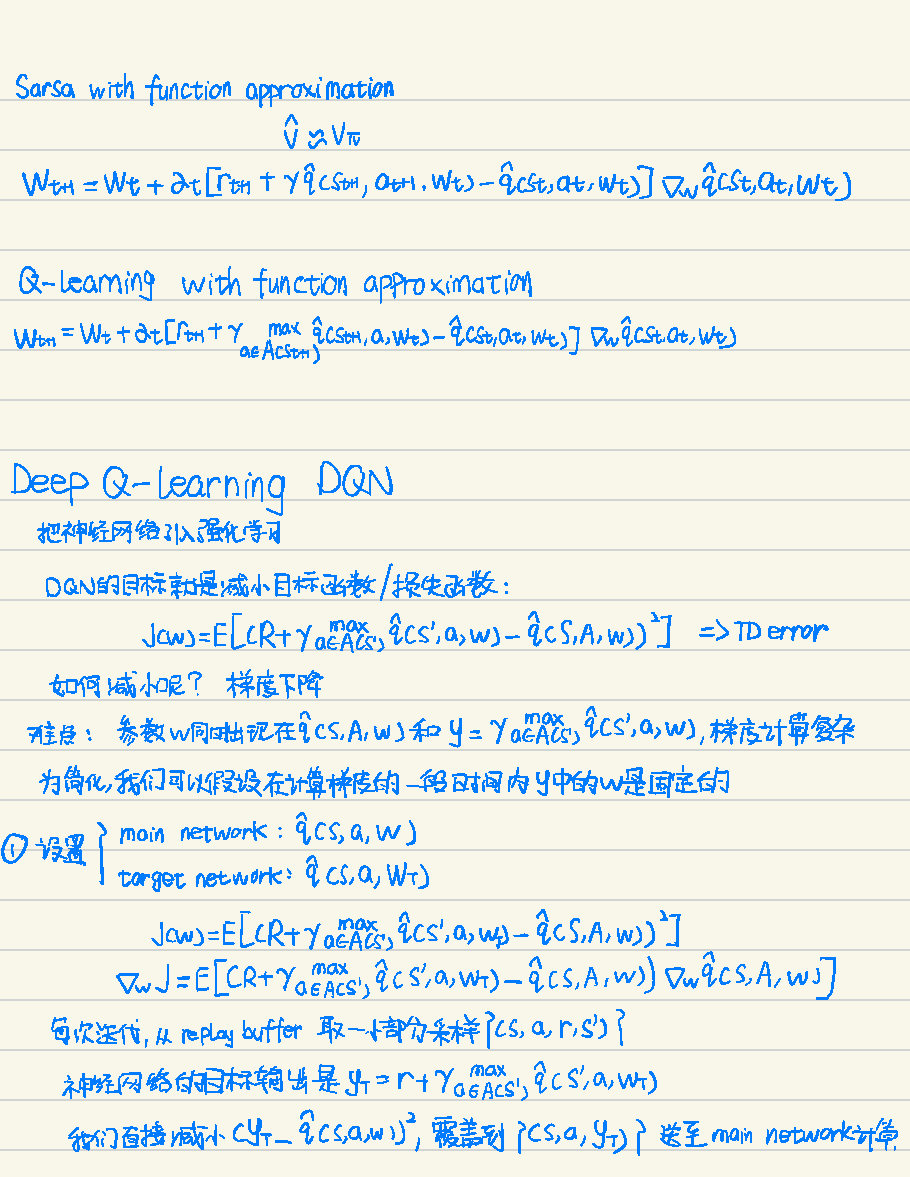 Sarsa with function approximation
v̂ ≈ vπ
w_{t+1} = w_t + α_t[r_{t+1} + γ q̂(s_{t+1}, a_{t+1}, w_t) - q̂(s_t, a_t, w_t)] ∇_w q̂(s_t, a_t, w_t)
Q-learning with function approximation
w_{t+1} = w_t + α_t[r_{t+1} + γ max_{a∈A(s_{t+1})} q̂(s_{t+1}, a, w_t) - q̂(s_t, a_t, w_t)] ∇_w q̂(s_t, a_t, w_t)
Deep Q-learning DQN
把神经网络引入强化学习
DQN的目标就是减小目标函数/损失函数:
J(w) = E[(R + γ max_{a∈A(s')} q̂(s', a, w) - q̂(S, A, w))²] => TD error
如何减小呢? 梯度下降
难点: 参数w同时出现在q̂(S, A, w)和 y = γ max_{a∈A(s')} q̂(s', a, w), 梯度计算复杂
为简化, 我们可以假设在计算梯度的一段时间内y中的w是固定的
① 设置 { main network: q̂(s, a, w)
target network: q̂(s, a, w_T)
J(w) = E[(R + γ max_{a∈A(s')} q̂(s', a, w_T) - q̂(S, A, w))²]
∇_w J = E[(R + γ max_{a∈A(s')} q̂(s', a, w_T) - q̂(S, A, w)) ∇_w q̂(S, A, w)]
每次迭代, 从 replay buffer 取一小部分采样{(s, a, r, s')}
神经网络的目标输出是 y_T = r + γ max_{a∈A(s')} q̂(s', a, w_T)
我们直接减小 (y_T - q̂(s, a, w))², 覆盖到 {(s, a, y_T)} 送至 main network计算